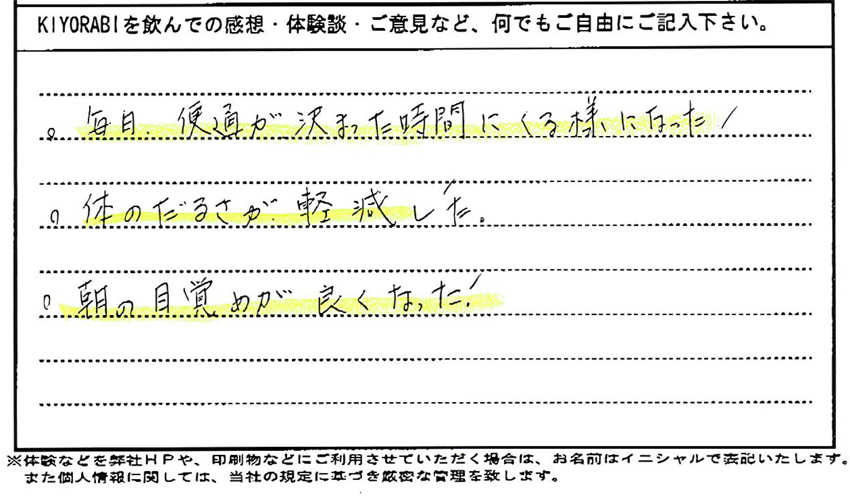 KIYORABIを飲んでの感想・体験談・ご意見など、何でもご自由にご記入下さい。
。毎日、便通が決まった時間にくる様になった!
。体のだるさが軽減した。
。朝の目覚めが良くなった!
※体験などを弊社HPや、印刷物などにご利用させていただく場合は、お名前はイニシャルで表記いたします。
また個人情報に関しては、当社の規定に基づき厳密な管理を致します。